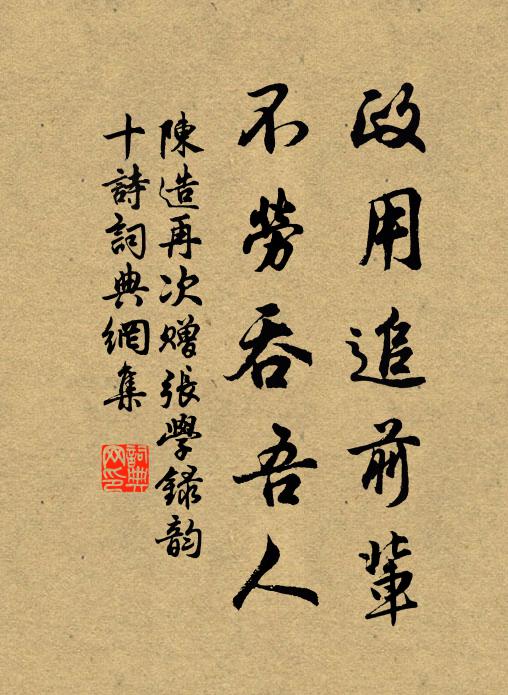 政用追前輩
不勞吞吾人
陳造再次贈張學錄韵
十詩詞典網集
詞典网印